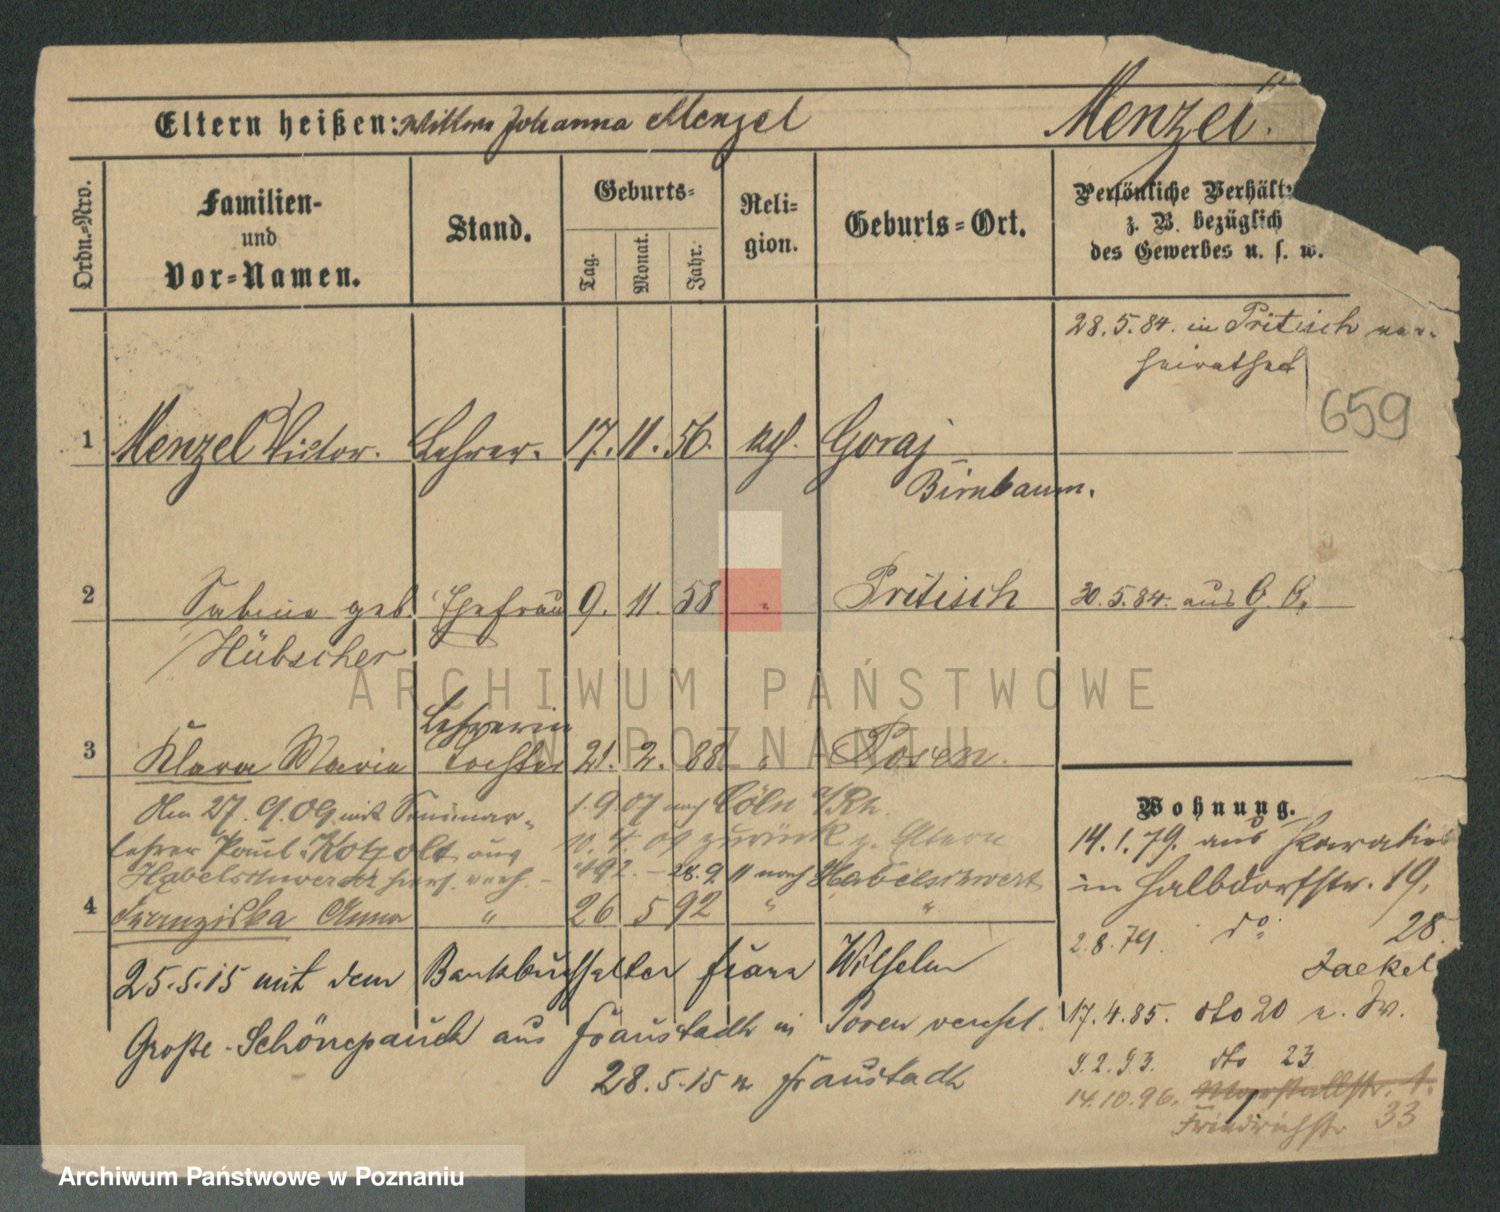 Eltern heißen: Wittwe Johanna Menzel
Menzel.
Ordn.-Nro.
Familien-
und
Vor-Namen.
Stand.
Geburts-
Tag.
Monat.
Jahr.
Reli-
gion.
Geburts-Ort.
Persönliche Verhält
z. B. bezüglich
des Gewerbes u. s. w.
28.5.84. in Pritisch ver-
heirathet
659
1 Menzel Victor. Lehrer. 17. 11. 56. kth. Goraj
Birnbaum.
2 Sabine geb. Ehefrau 9. 11. 58 " Pritisch 30.5.84. aus G. O.
Hübscher
Lehrerin
3 Klara Maria Tochter 21. 2. 88 " Posen.
Am 27.9.09 mit Seminar- 1.9.07 nach Cöln a/Rh.
lehrer Paul Kotzolt aus 09 zurück z. Eltern
Habelschwerdt verh. – 28.9 11 nach Habelschwert
4 Franziska Anna " 26 5 92 " "
25.5.15 mit dem Bankbuchhalter Franz Wilhelm
Große-Schönepauck aus Fraustadt in Posen verehel.
28.5.15 n Fraustadt
Wohnung.
14.1.79. aus
in Halbdorfstr. 19,
2.8.79. do 28
Jaekel
17.4.85. dto 20
9.2.93. dto 23
14.10.96. Marstallstr. 1.
Friedrichstr 33
ARCHIWUM PAŃSTWOWE
W POZNANIU
Archiwum Państwowe w Poznaniu